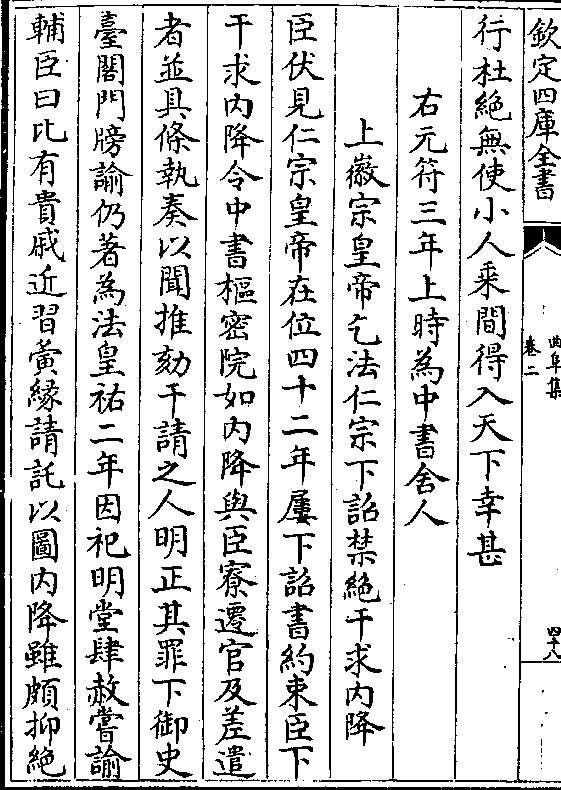 欽定四庫全書
曲阜集
卷二
四十八
行杜絶無使小人乗間得入天下幸甚
右元符三年上時為中書舍人
上徽宗皇帝乞法仁宗下詔禁絶干求内降
臣伏見仁宗皇帝在位四十二年屢下詔書約束臣下
干求内降令中書樞密院如内降與臣寮遷官及差遣
者並具條執奏以聞推劾干請之人明正其罪下御史
臺閣門牓諭仍著為法皇祐二年因祀明堂肆赦嘗諭
輔臣曰比有貴戚近習夤縁請託以圖内降雖頗抑絶